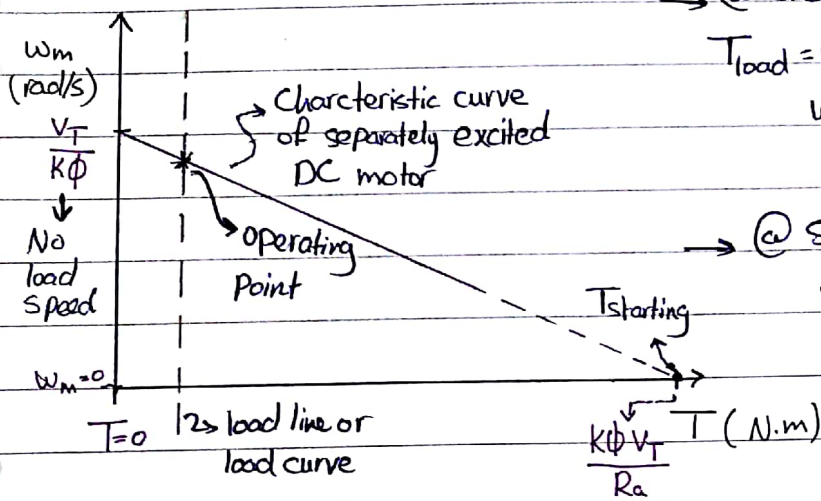 ωm
(rad/s)
VT
Kφ
No
load
speed
ωm=0
T=0
Charcteristic curve
of separately excited
DC motor
operating
Point
Tstarting
load line or
load curve
KφVT
Ra
T (N.m)
Tload =
@